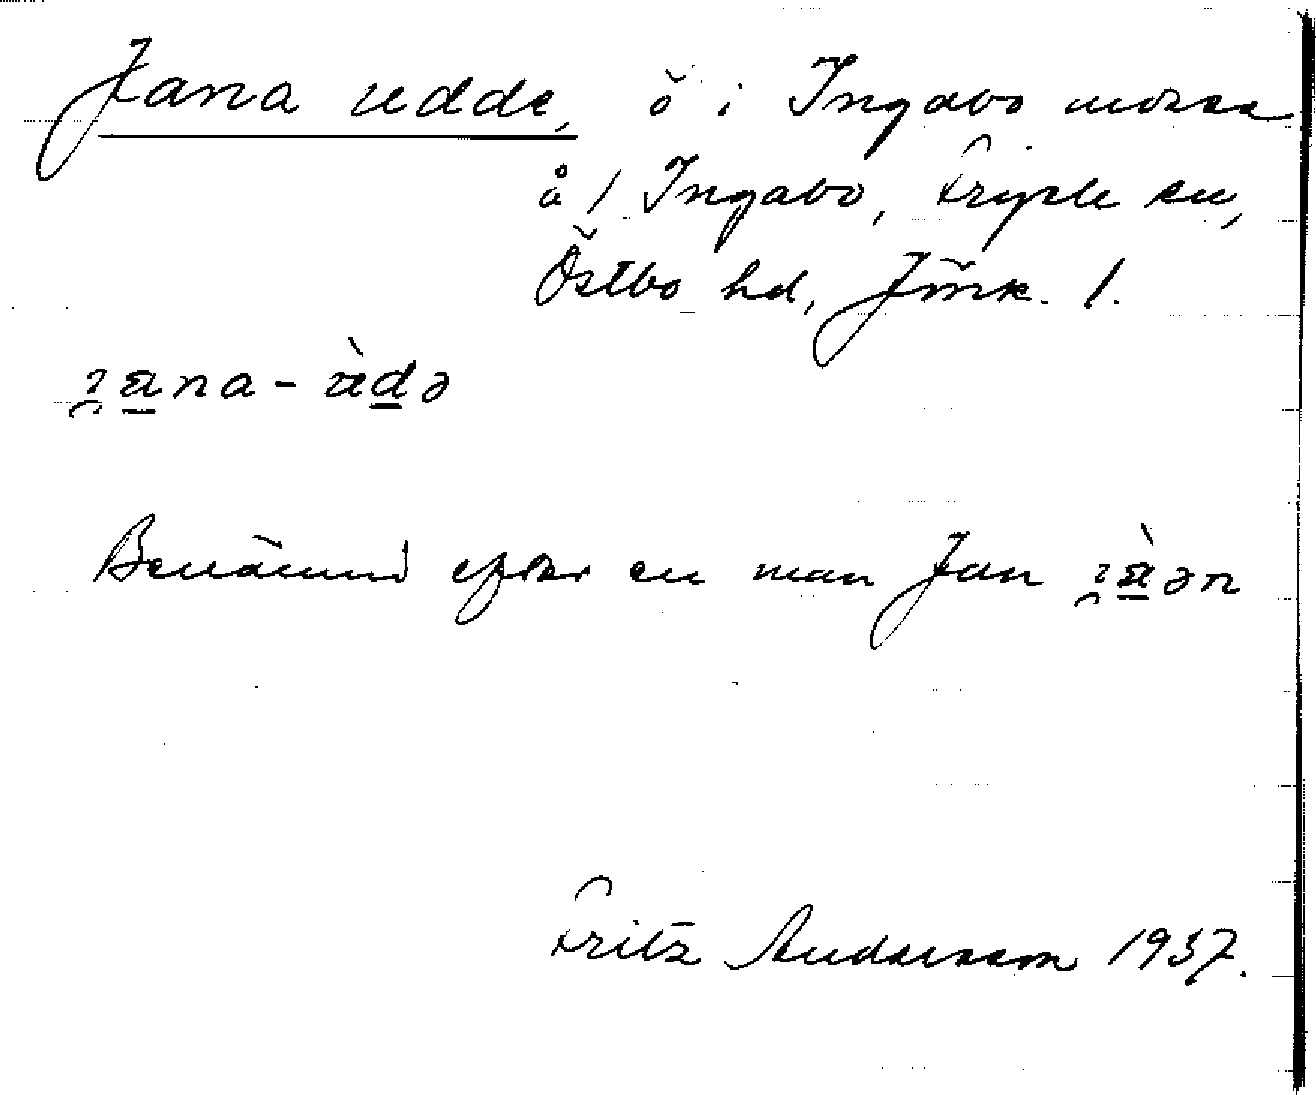 Jana udde, ö i Ingabo mosse
å / Ingabo, Fryele sn,
Östbo hd, Jönk. l.
Benämnd efter en man Jan
Fritz Andersson 1937.